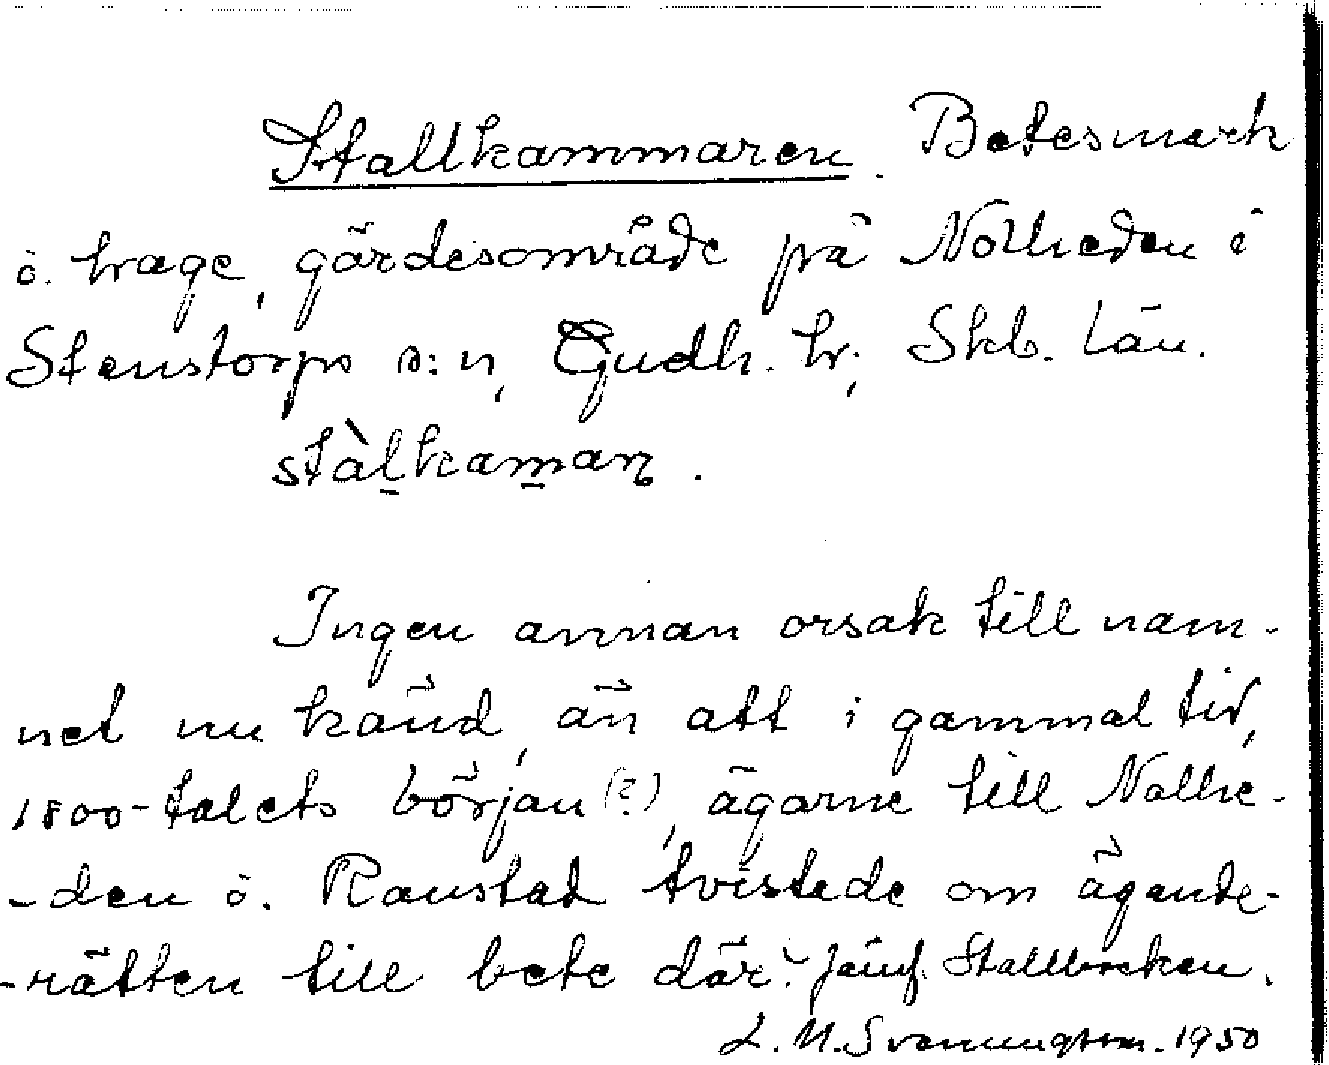 Stallkammaren. Betesmark
ö. hage, gärdesområde på Nolheden i
Stenstorps s:n, Gudh. hr; Skb. län.
stàlkaman.
Ingen annan orsak till nam-
net nu känd, än att i gammal tid,
1800-talets början (?), ägarne till Nolhe-
-den ö. Ranstad tvistade om ägande-
-rätten till bete där. Jämf. Stallbacken.
L. M. Svanungsson. 1950